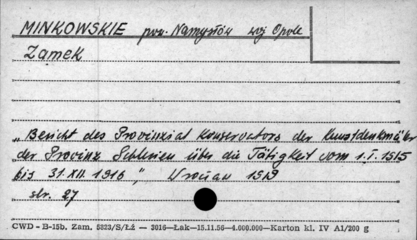 MINKOWSKIE pow. Namysłów woj Opole
Zamek
"Bericht des Provinzial Konservators der Kunstdenkmäler
der Provinz Schlesien über die Tätigkeit vom 1.I.1515
bis 31.XII 1916", Wrocław 1519
str. 27
CWD - B-15b. Zam. 5323/S/Łż — 3016—Łak—15.11.56—4.000.000—Karton kl. IV A1/200 g